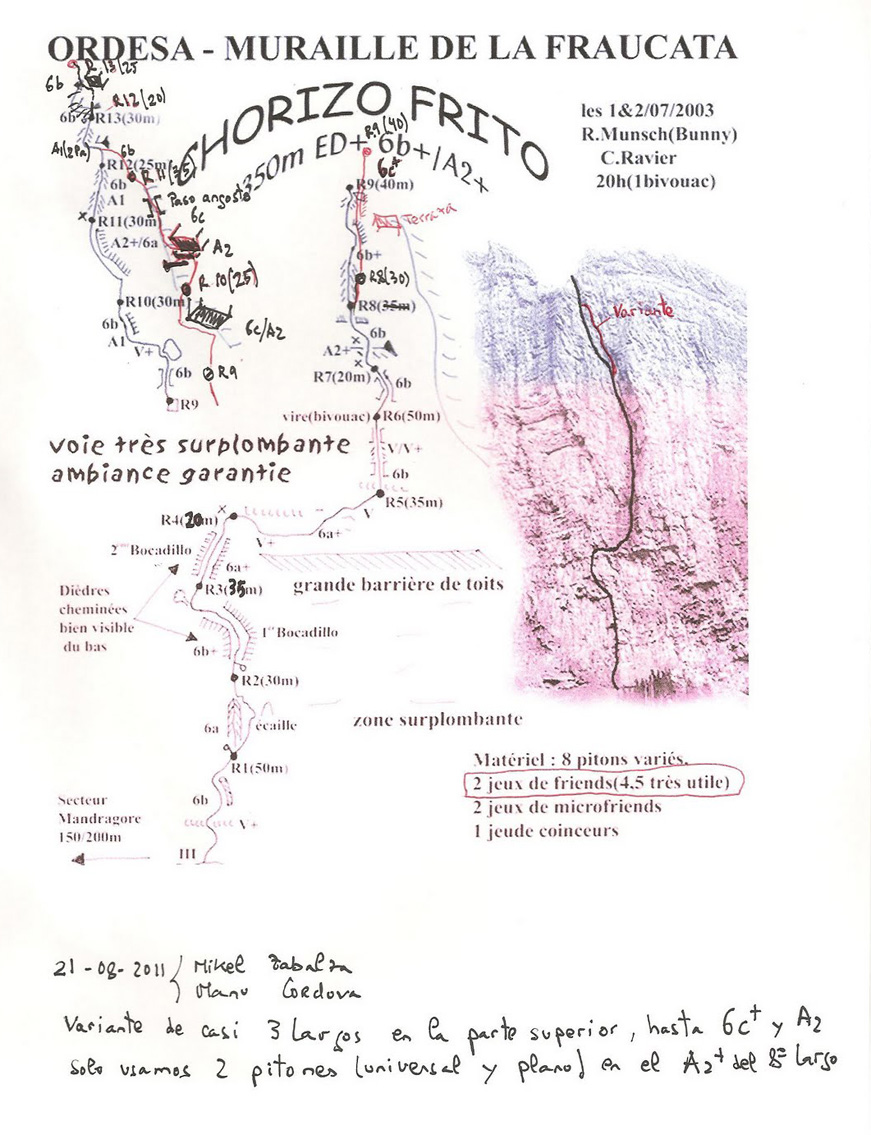 ORDESA - MURAILLE DE LA FRAUCATA
CHORIZO FRITO
350m ED+ 6b+/A2+
les 1&2/07/2003
R.Munsch(Bunny)
C.Ravier
20h(1bivouac)
R.13(25
6b
R12(20)
6b
R13(30m)
A1(2Pa)
6b
R12(25m)
R11(35)
6b
A1
Paso angosto
6c
R11(30m)
A2+/6a
A2
R.10(25)
R10(30m)
6c/A2
6b
A1
V+
6b
R9
R9
R9(40)
6c+
R9(40m)
Terraza
6b+
R8(30)
R8(35m)
6b
A2+
R7(20m)
6b
vire(bivouac)
R6(50m)
V/V+
6b
R5(35m)
V
6a+
V+
Variante
voie très surplombante
ambiance garantie
R4(20m)
2ème Bocadillo
6a+
grande barrière de toits
R3(35m)
Dièdres
cheminées
bien visible
du bas
1er Bocadillo
6b+
R2(30m)
6a
écaille
zone surplombante
R1(50m)
6b
V+
III
Secteur
Mandragore
150/200m
Matériel : 8 pitons variés.
2 jeux de friends(4.5 très utile)
2 jeux de microfriends
1 jeude coinceurs
21-08-2011 Mikel Zabalza
Manu Cordova
Variante de casi 3 largos en la parte superior, hasta 6c+ y A2
Solo usamos 2 pitones (universal y plano) en el A2+ del 8º largo